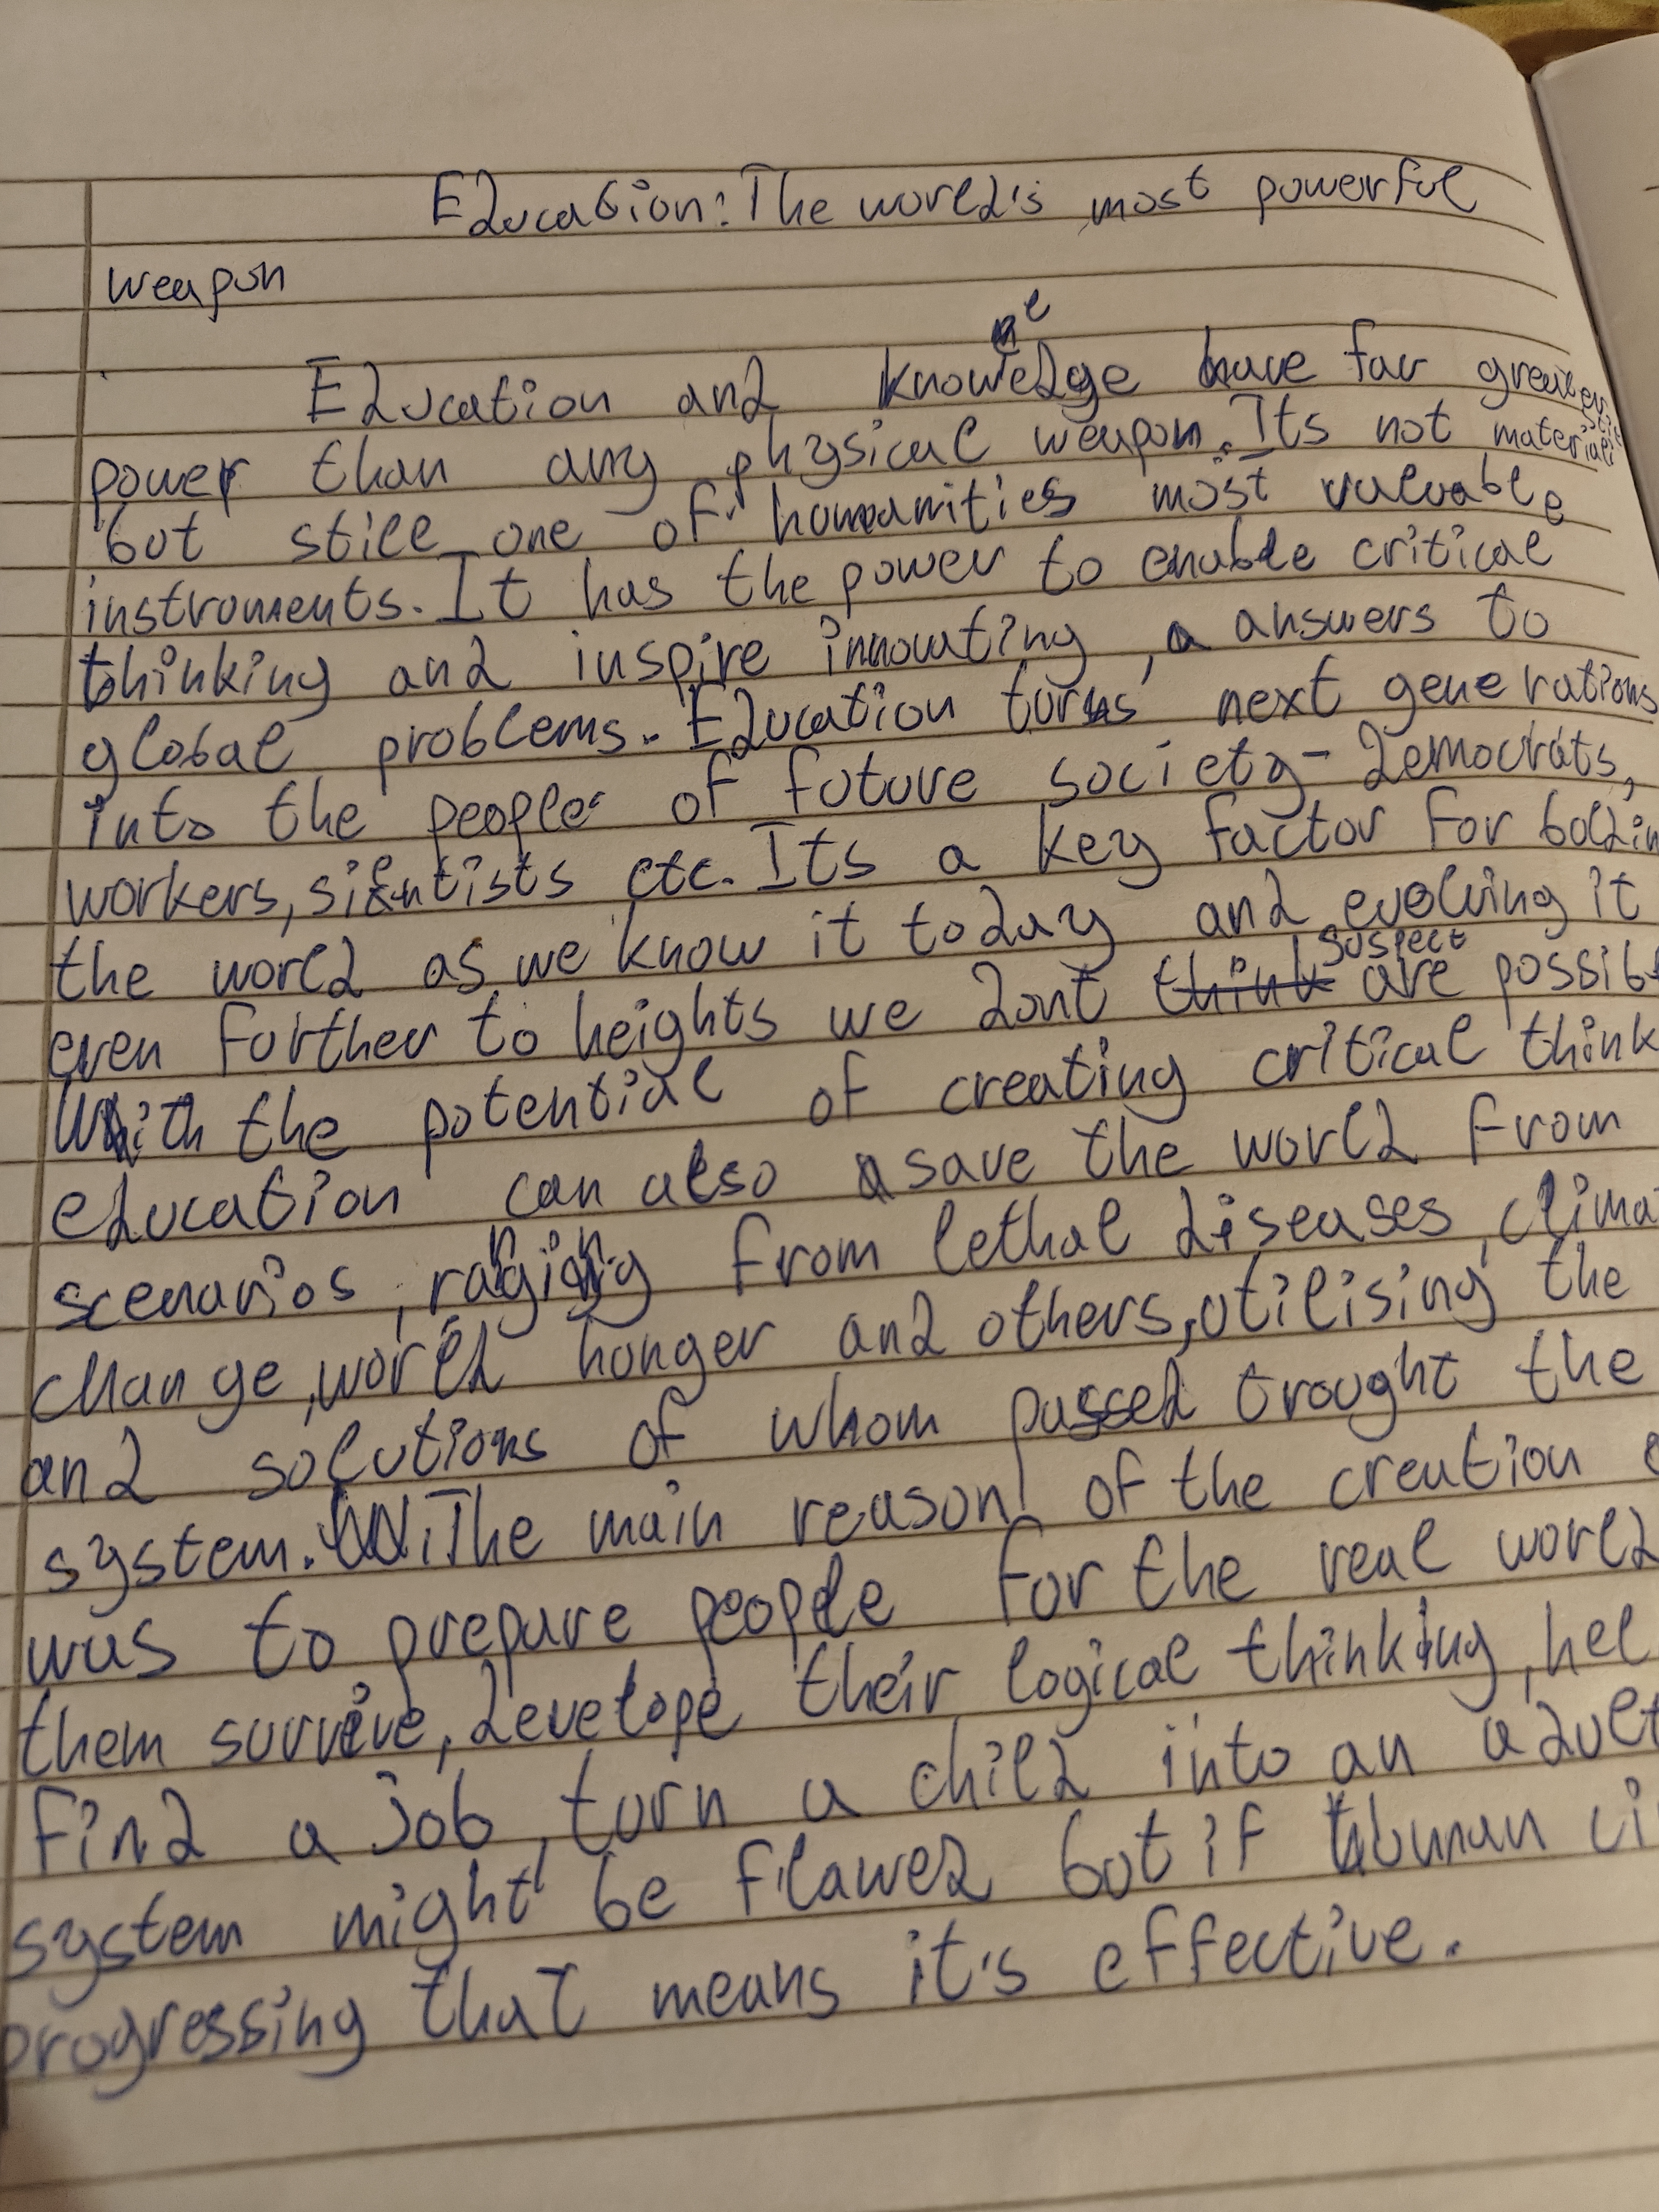 Education: The world's most powerful
weapon
Education and knowledge have far greater
power than any physical weapon. Its not material
but still one of humanities most valuable
instruments. It has the power to enable critical
thinking and inspire innovating, answers to
global problems. Education turns next generations
into the people of future society - democrats,
workers, sientists etc. Its a key factor for
the world as we know it today and evolving it
even further to heights we dont suspect are
With the potential of creating critical
education can also save the world from
scenarios, ranging from lethal diseases,
change, world hunger and others, utilising the
and solutions of whom passed trought the
system. The main reason of the creation
was to prepare people for the real world
them survive, develope their logical thinking,
find a job, turn a child into an adult
system might be flawed but if human
progressing that means it's effective.